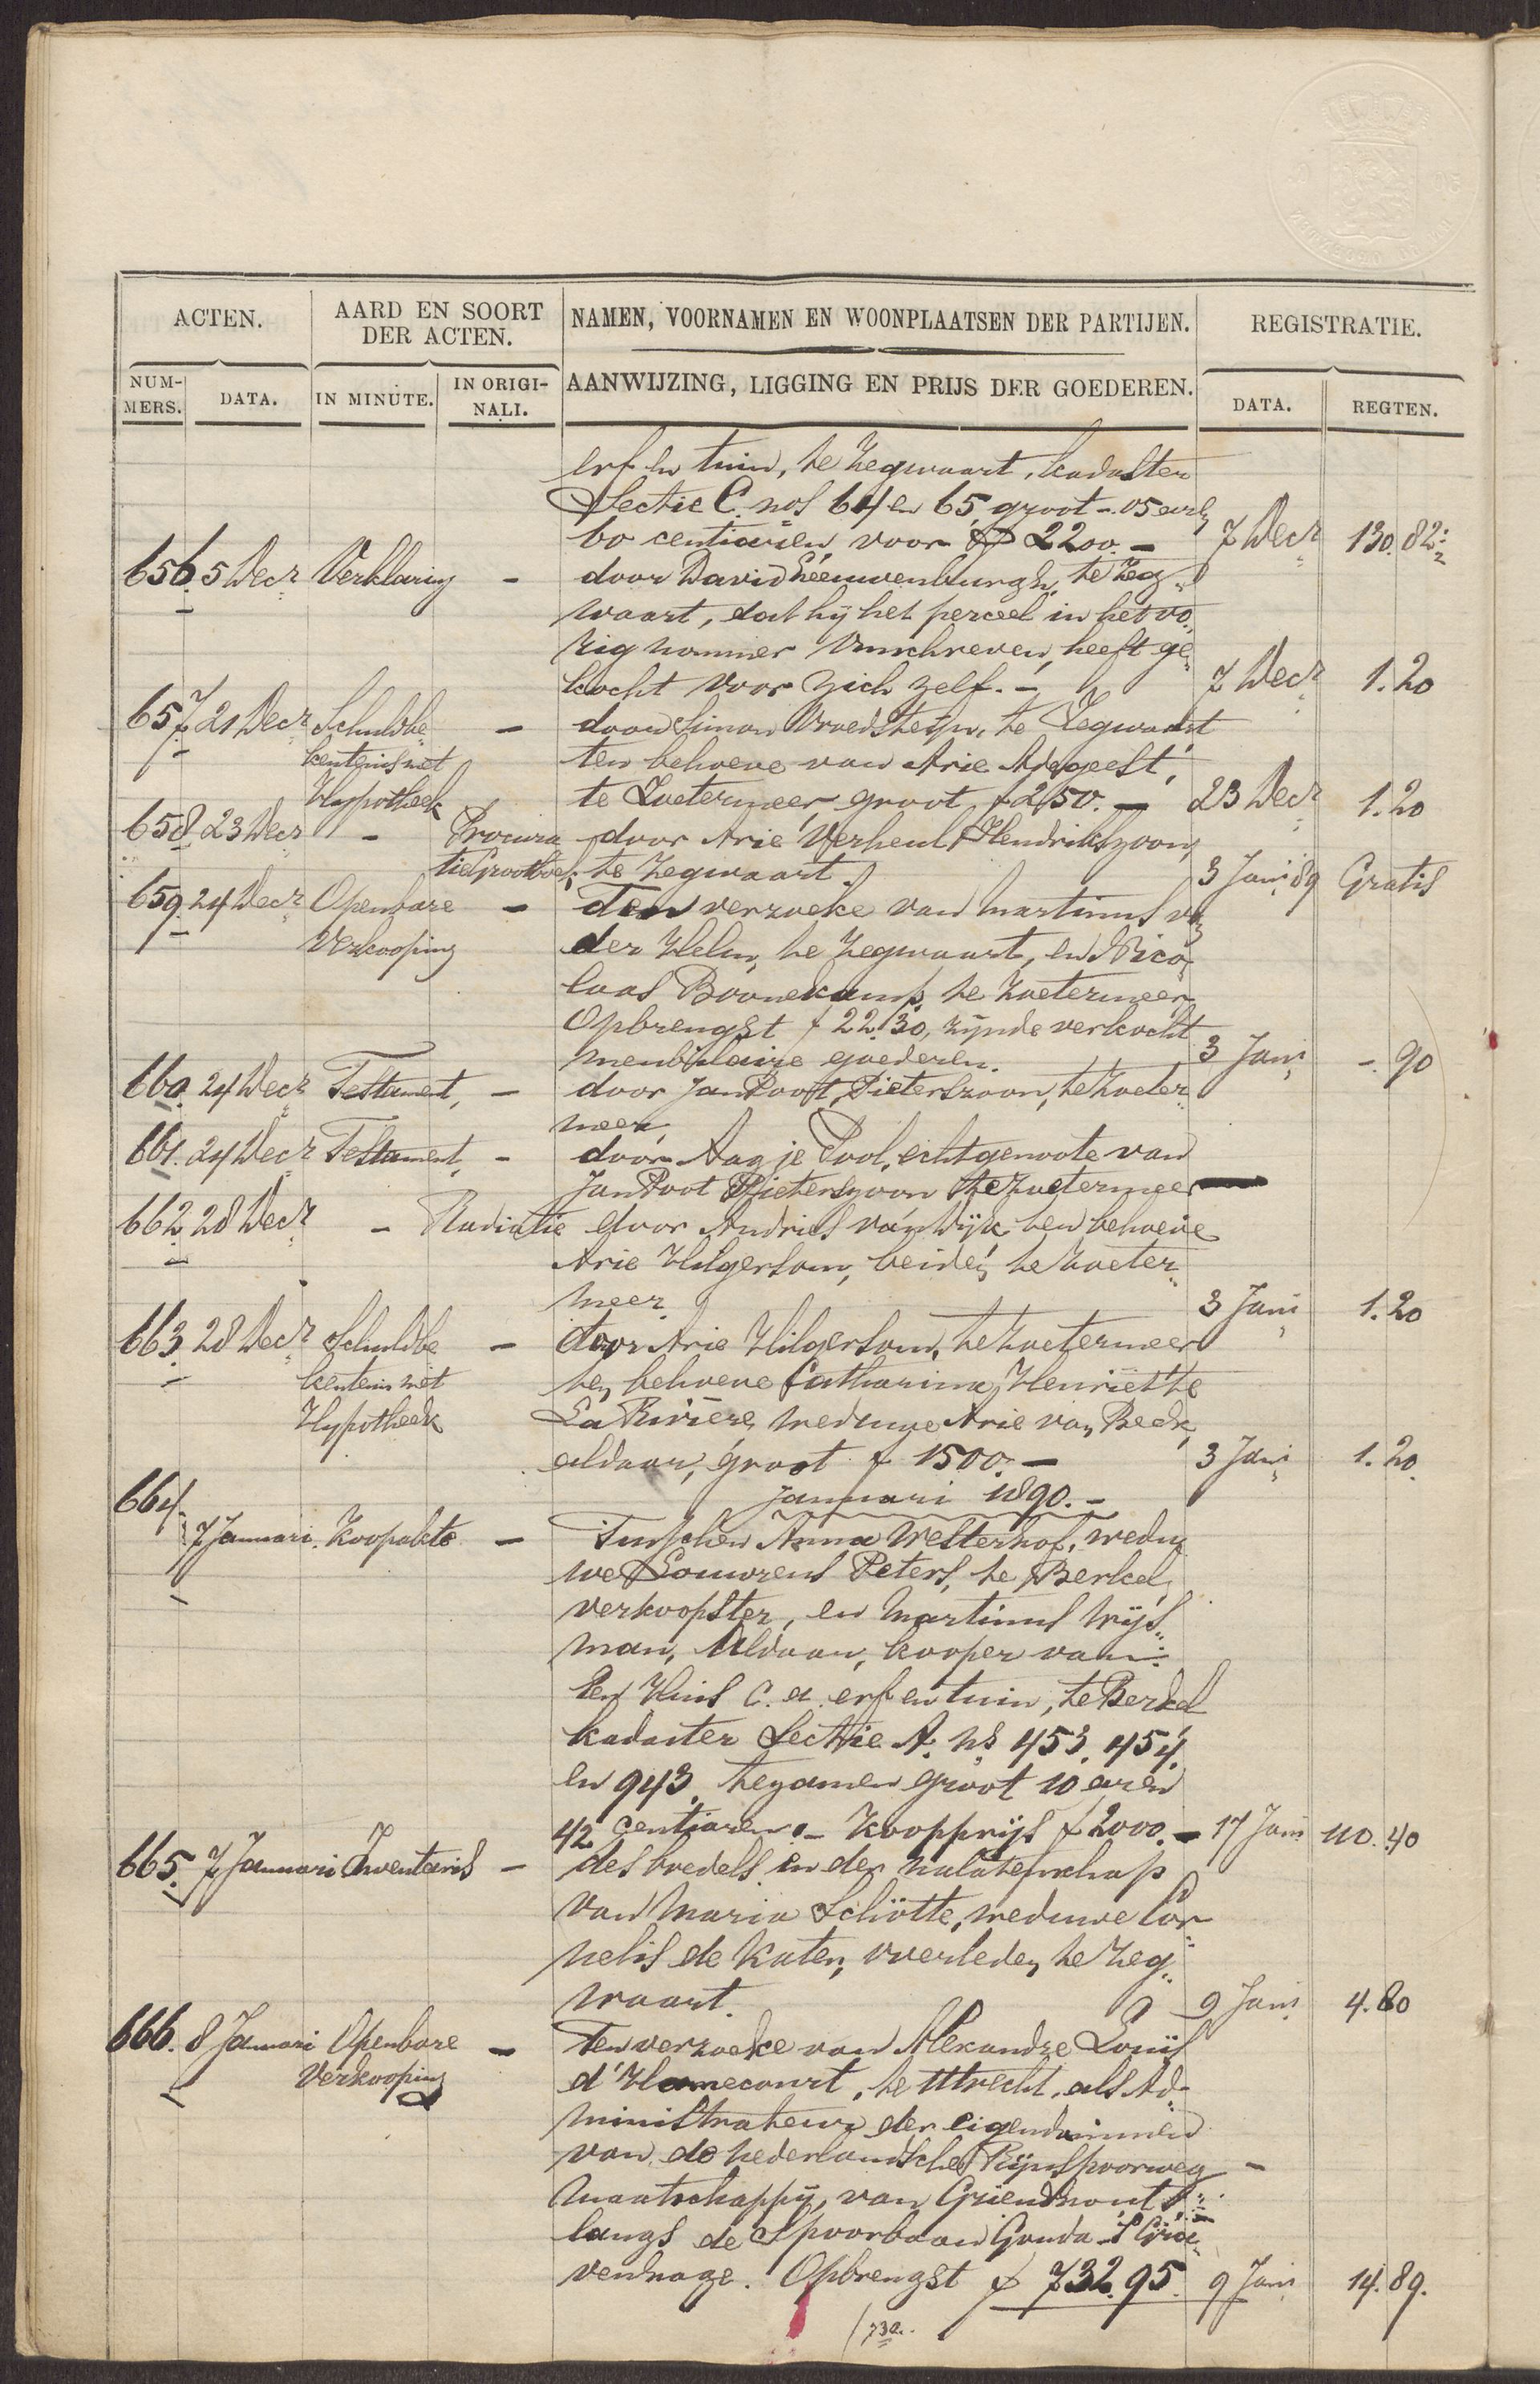 ACTEN.
AARD EN SOORT
DER ACTEN.
NAMEN, VOORNAMEN EN WOONPLAATSEN DER PARTIJEN.
REGISTRATIE.
NUM-
MERS.
DATA.
IN MINUTE.
IN ORIGI-
NALI.
AANWIJZING, LIGGING EN PRIJS DER GOEDEREN.
DATA.
REGTEN.
erf en tuin, te Zegwaart, kadaster
Sectie C. nos 64 en 65, groot -.05 aren
60 centiaren, voor ƒ 2200.- 7 Decr 130.82½
656. 5 Decr Verklaring - door David Leeuwenburgh, te Zeg„
waart, dat hij het perceel in het vo„
rig nommer omschreven, heeft ge„
kocht voor zich zelf.- 7 Decr 1.20
657. 21 Decr Schuldbe„ - door Simon Vroedsteijn, te Zegwaart
kentenis met ten behoeve van Arie Adegeest,
Hypotheek te Zoetermeer, groot ƒ 250.- 23 Decr 1.20
658. 23 Decr - Procura door Arie Verheul Hendrikszoon,
tie Grootboek te Zegwaart. 3 Jani 89 Gratis
659. 24 Decr Openbare - Ten verzoeke van Martinus van
Verkooping der Helm, te Zegwaart, en Nico„
laas Boonekamp, te Zoetermeer
Opbrengst ƒ 22.30, zijnde verkocht
meubilaire goederen. 3 Jani -.90
660. 24 Decr Testament, - door Jan Poot, Pieterszoon, te Zoeter„
meer,
661. 24 Decr Testament, - door Aagje Pool, echtgenoote van
Jan Poot Pieterszoon te Zoetermeer
662. 28 Decr - Radiatie door Andries van Wijk ten behoeve
Arie Hilgersom, beiden te Zoeter„
meer. 3 Jani 1.20
663. 28 Decr Schuldbe - door Arie Hilgersom, te Zoetermeer
kentenis met ten behoeve Catharina Henriëtte
Hypotheek La Rivière, weduwe Arie van Beek,
aldaar, groot ƒ 1500.- 3 Jani 1.20.
Januari 1890.-
664.
7 Januari. Koopakte - Tusschen Anna Westerhof, wedu„
we Louwrens Peters, te Berkel,
verkoopster, en Martinus Wijs„
man, Aldaar, kooper van:
Een Huis c.a. erf en tuin, te Berkel
kadaster Sectie A. ns 453, 454.
en 943, tezamen groot 10 aren
42 centiaren.- Koopprijs ƒ 2000.- 17 Jani 110.40
665. 7 Januari Inventaris - des boedels in der nalatenschap
van Maria Schotte, weduwe Cor„
nelis de Kater, overleden te Zeg„
waart. 9 Jani 4.80
666. 8 Januari Openbare - Ten verzoeke van Alexandre Louis
Verkooping d'Hamecourt, te Utrecht, als Ad„
ministrateur der eigendommen
van de Nederlandsche Rijnspoorweg -
Maatschappij, van Griendhout,
langs de Spoorbaan Gouda - 'S Gra„
venhage. Opbrengst ƒ 732.95. 9 Jani 14.89.
/732.